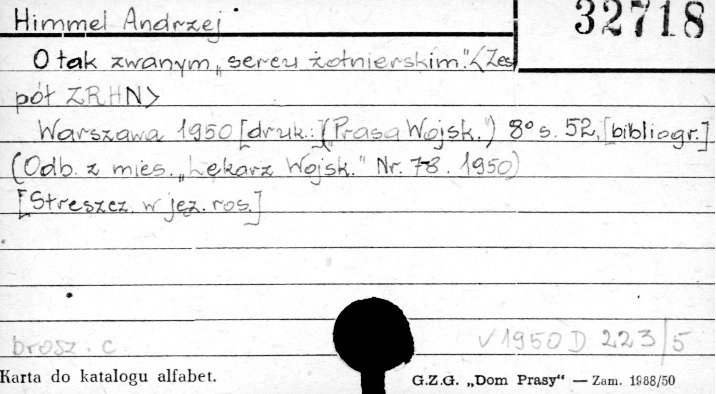 Himmel Andrzej
32718
O tak zwanym „sercu żołnierskim". <Zes
pół ZRHN>
Warszawa 1950 [druk.:] („Prasa Wojsk.") 8° s. 52, [bibliogr.]
(Odb. z mies. „Lekarz Wojsk." Nr. 7-8. 1950)
[Streszcz. w jęz. ros.]
brosz. c.
V 1950 D 223/5
Karta do katalogu alfabet.
G.Z.G. „Dom Prasy" — Zam. 1988/50